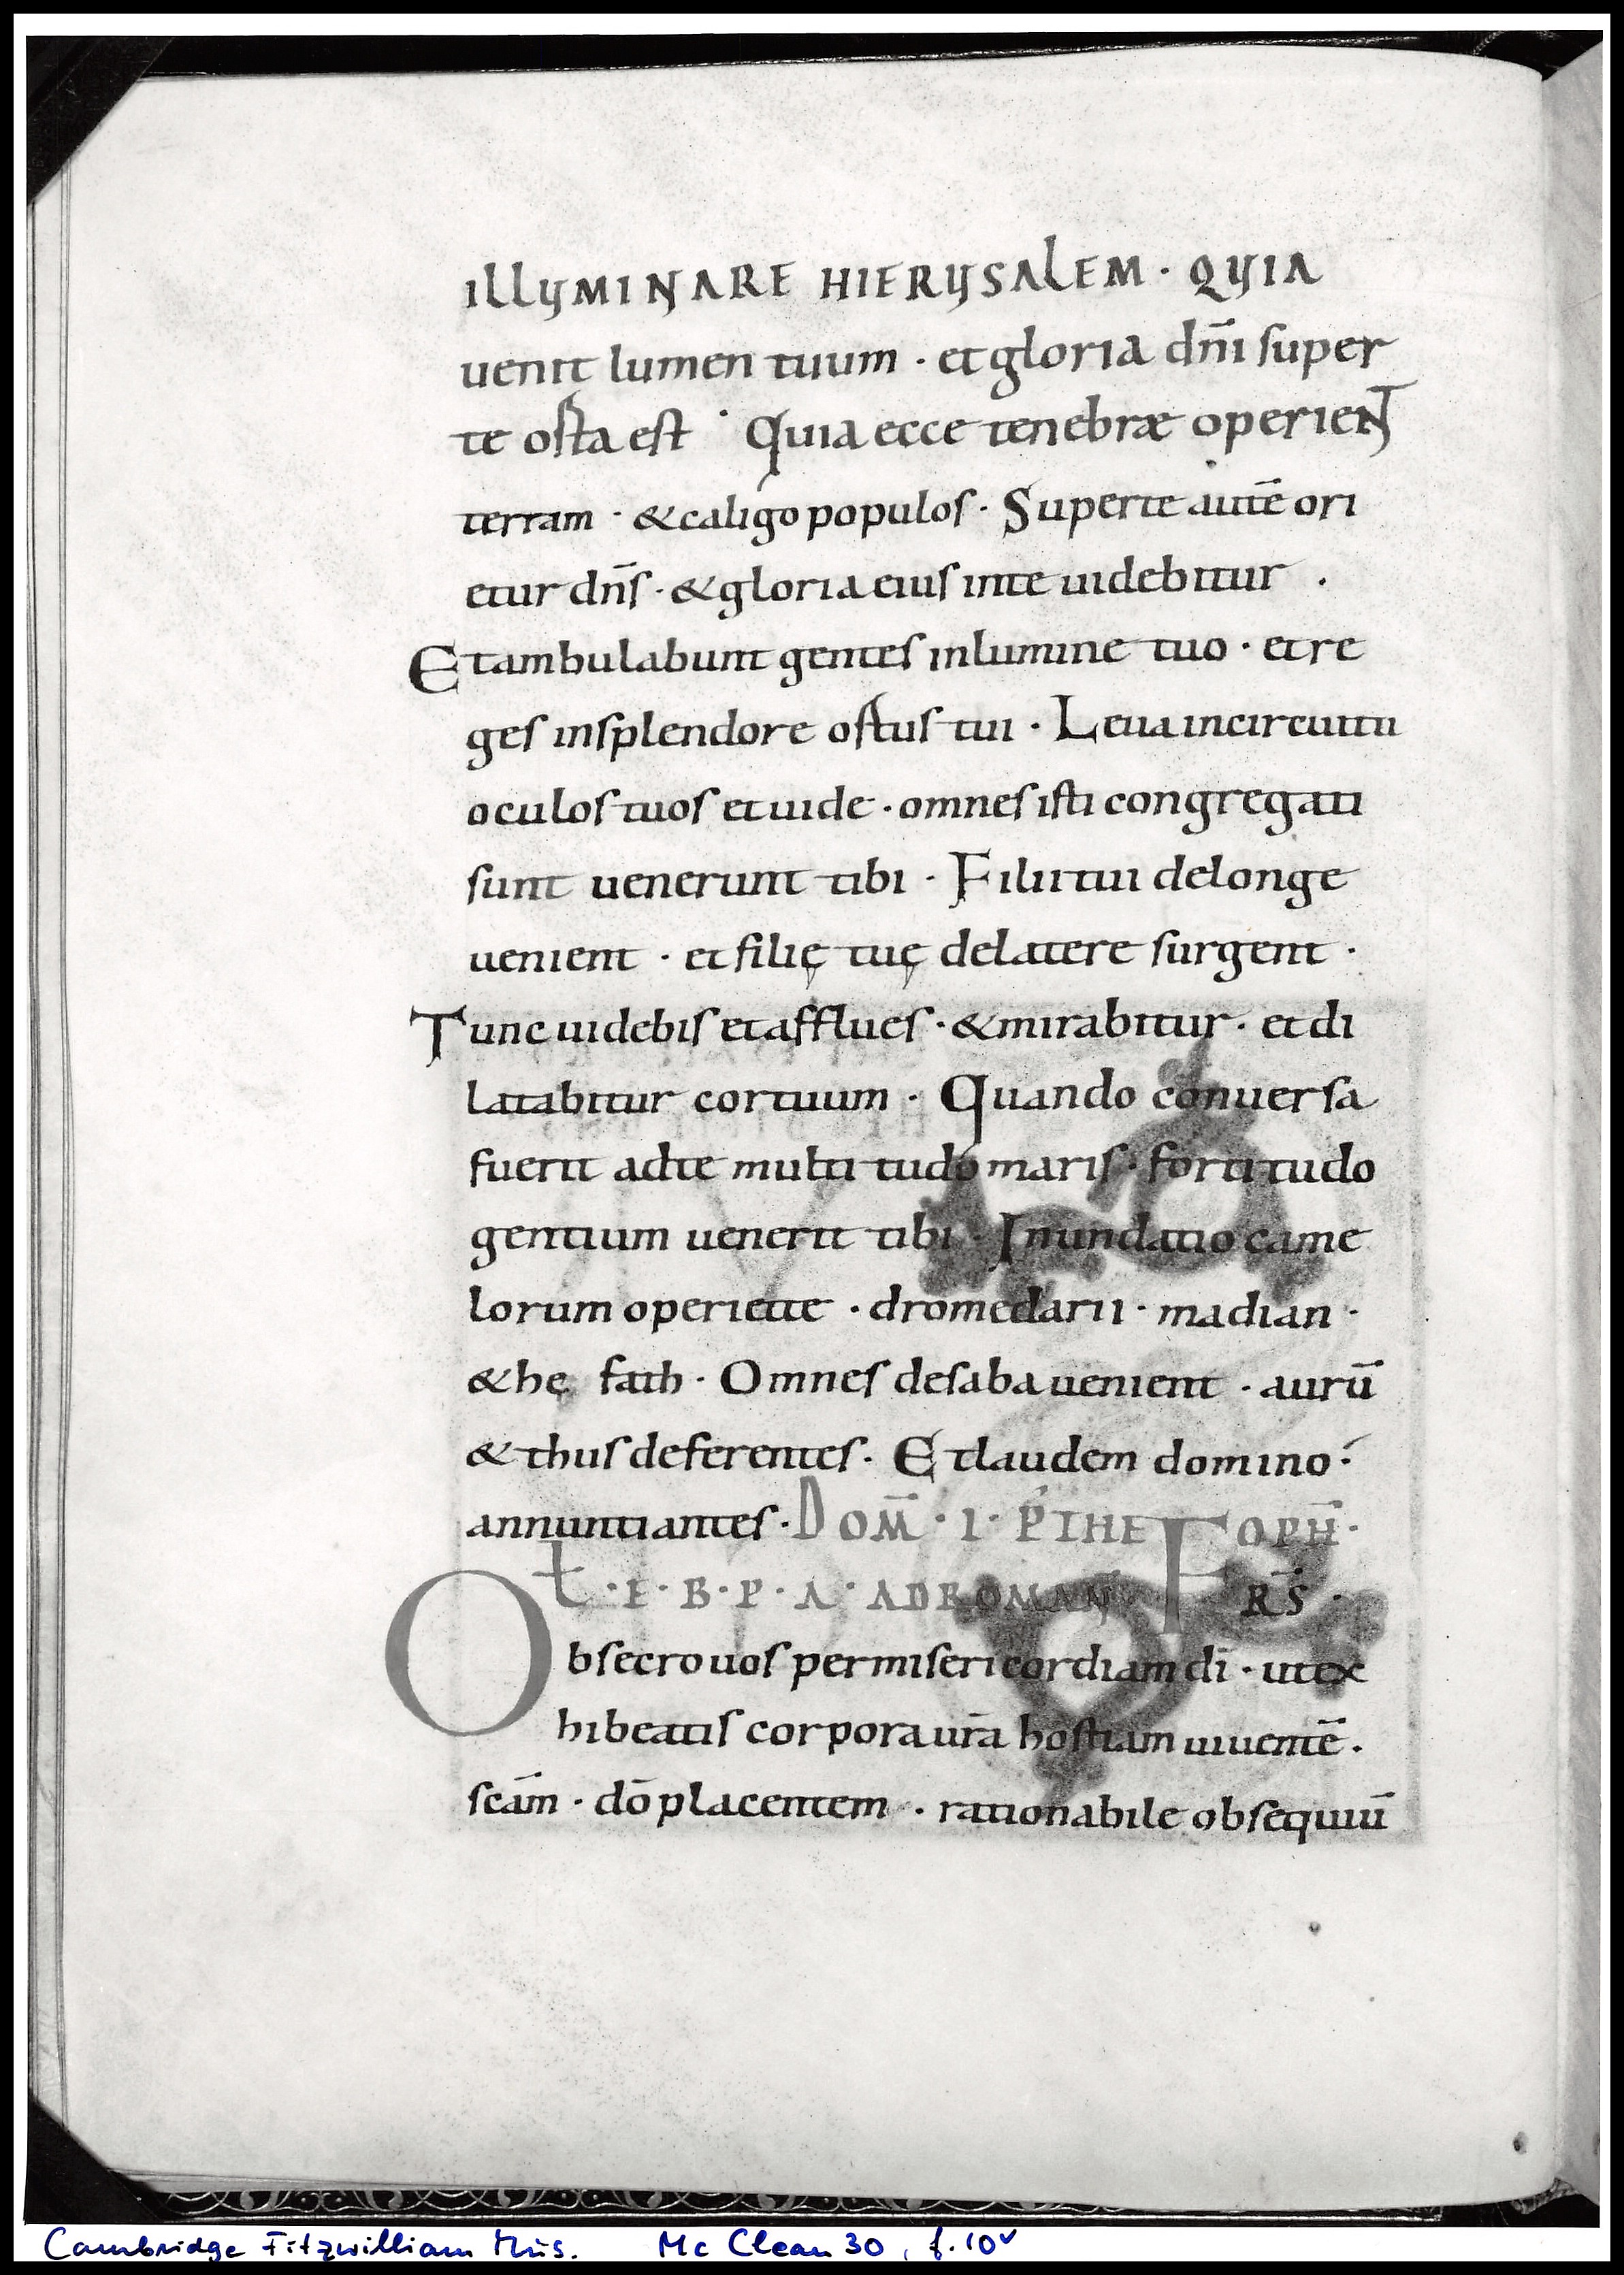 ILLUMINARE HIERUSALEM · QUIA
uenit lumen tuum · et gloria dñi super
te orta est · Quia ecce tenebræ operieNT
terram · & caligo populos · Super te autē ori
etur dñs · & gloria eius in te uidebitur ·
Et ambulabunt gentes in lumine tuo · et re
ges in splendore ortus tui · Leua in circuitu
oculos tuos et uide · omnes isti congregati
sunt uenerunt tibi · Filii tui de longe
uenient · et filię tuę de latere surgent ·
Tunc uidebis et afflues · & mirabitur · et di
latabitur cor tuum · Quando conuersa
fuerit ad te multitudo maris · fortitudo
gentium uenerit tibi · Inundatio came
lorum operiet te · dromedarii · madian ·
& he fath · Omnes de saba uenient · aurū
& thus deferentes · Et laudem domino
annuntiantes · DOM̄ · I · P̄ THEOPH̄ ·
L · E · B · P · A · AD ROMAN̄ FRS̄ ·
Obsecro uos per misericordiam dī · ut ex
hibeatis corpora ur̄a hostiam uiuentē ·
scām · dō placentem · rationabile obsequiū
Cambridge Fitzwilliam Mus. Mc Clean 30, f. 10v